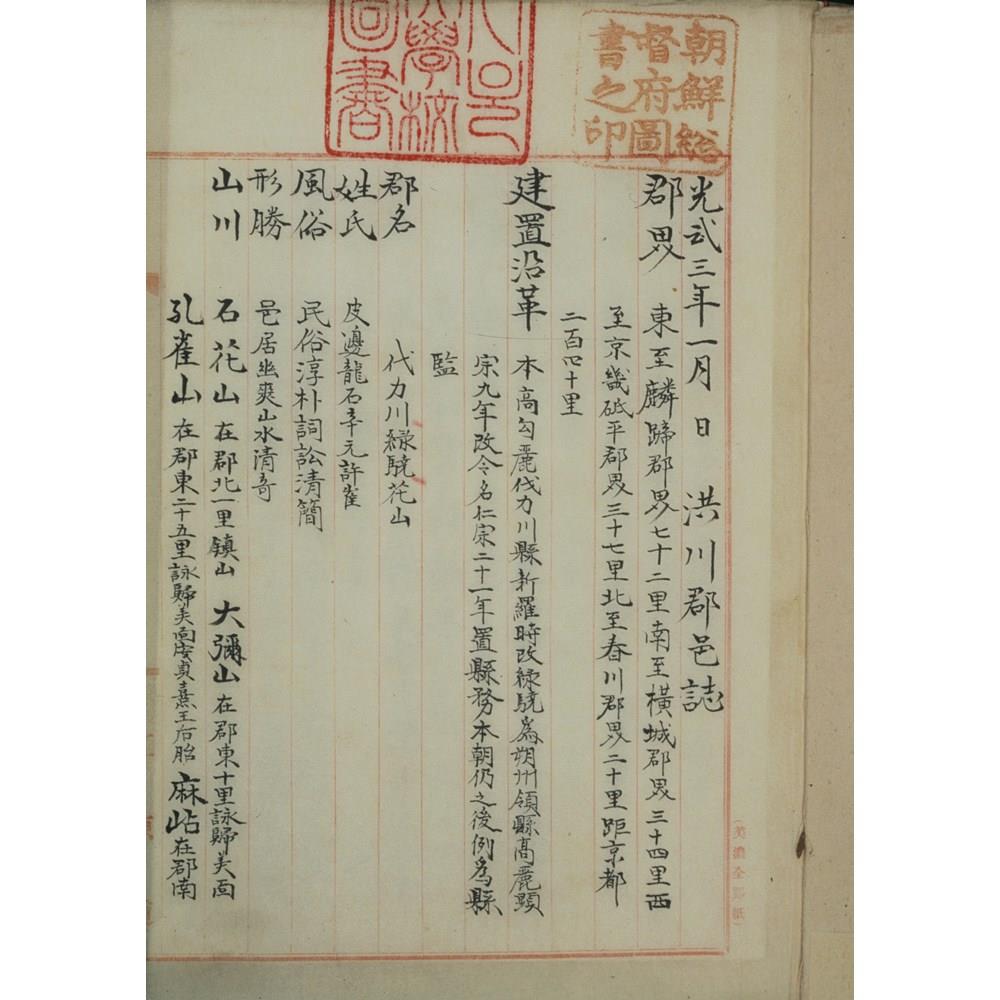 朝鮮総
督府圖
書之印
學校
圖書
光武三年一月 日 洪川郡邑誌
郡界 東至麟蹄郡界七十二里南至橫城郡界三十四里西
至京畿砥平郡界三十七里北至春川郡界二十里距京都
二百四十里
建置沿革 本高勾麗伐力川縣新羅時改綠驍爲朔州領縣高麗顯
宗九年改今名仁宗二十一年置縣務本朝仍之後例爲縣
監
郡名 伐力川綠驍花山
姓氏 皮邊龍石辛元許崔
風俗 民俗淳朴詞訟清簡
形勝 邑居幽爽山水清奇
山川 石花山 在郡北一里鎮山 大彌山 在郡東十里詠歸美面
孔雀山 在郡東二十五里詠歸美面安貞熹王后胎 麻岾 在郡南